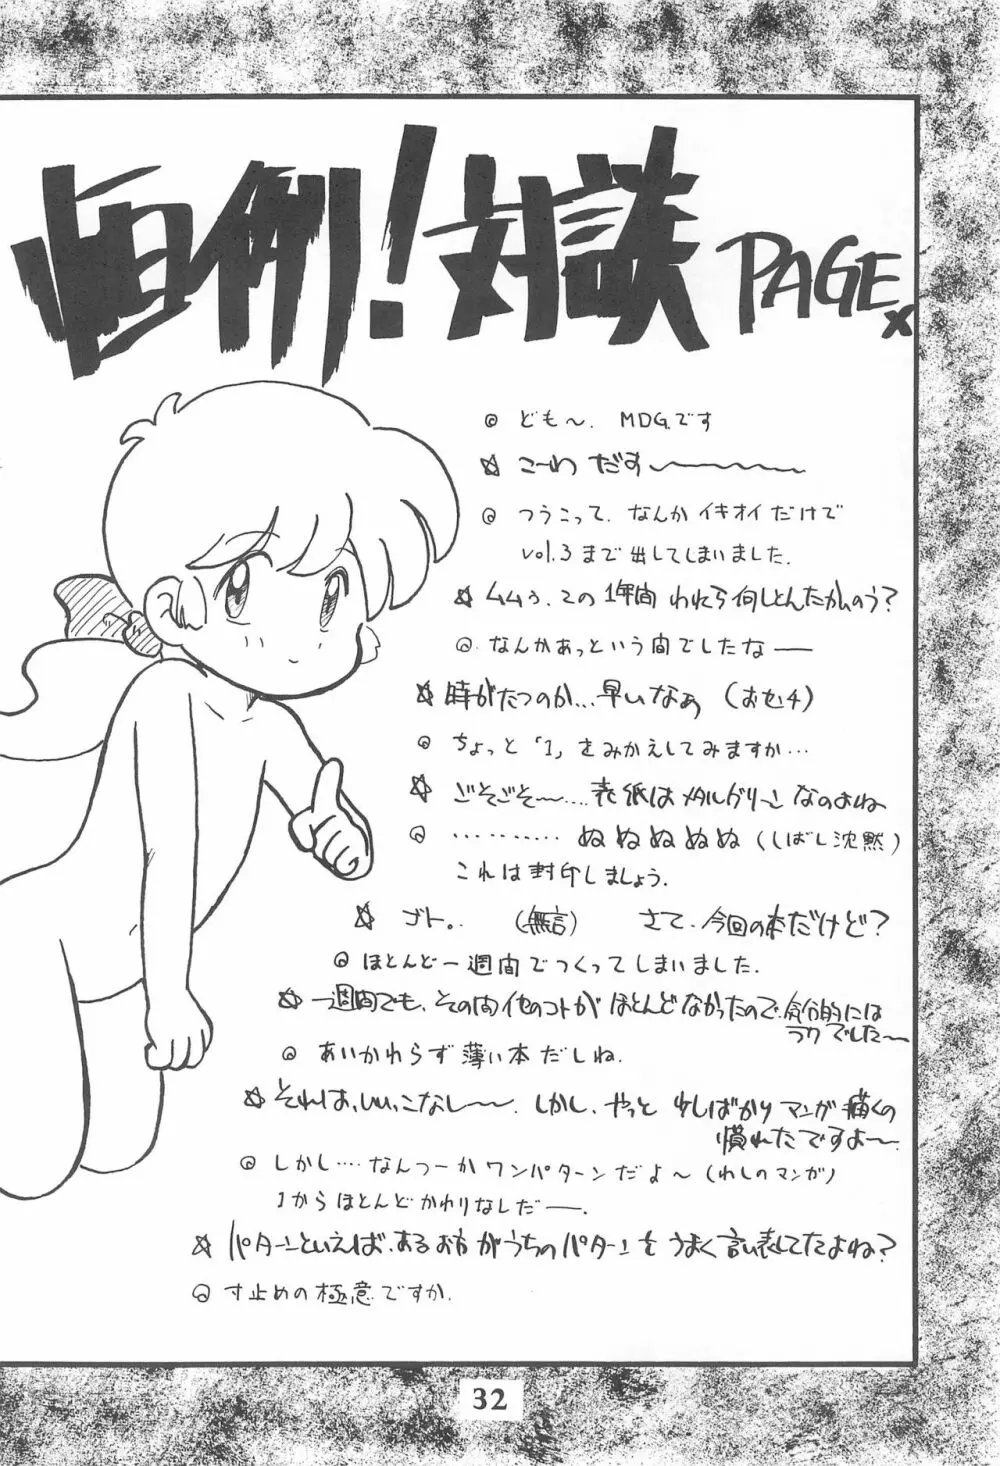 恒例！対談 PAGE
◎ ども〜. MDG.です
☆ こーわ だす〜〜
◎ つうこって. なんかイキオイだけで
vol.3まで出してしまいました.
☆ ムムゥ. この1年間 われら何しとんたかのう？
◎. なんかあっという間でしたなー
☆ 時がたつのか…早いなぁ （おせ4）
◎ ちょっと「1」をみかえしてみますか…
☆ ごそごそ〜….表紙はメタルグリーンなのよね
◎ ………… ぬぬぬぬぬ（しばし沈黙）
これは封印しましょう.
☆ ゴト。. （無言） さて. 今回の本だけど？
◎ ほとんど一週間でつくってしまいました.
☆ 一週間でも、その間他のコトが ほとんどなかったので. 気分的には
ラクでした〜
◎ あいかわらず薄い本だしね.
☆ それは、いい、こなし〜. しかし、やっと 少しばかりマンガ描くの
慣れたですよ〜
◎ しかし….なんつーかワンパターンだよ〜（わしのマンガ）
1からほとんどかわりなしだー.
☆ パターンといえば、あるお方がうちのパターンをうまく言い表してたよね？
◎ 寸止めの極意ですか.
32